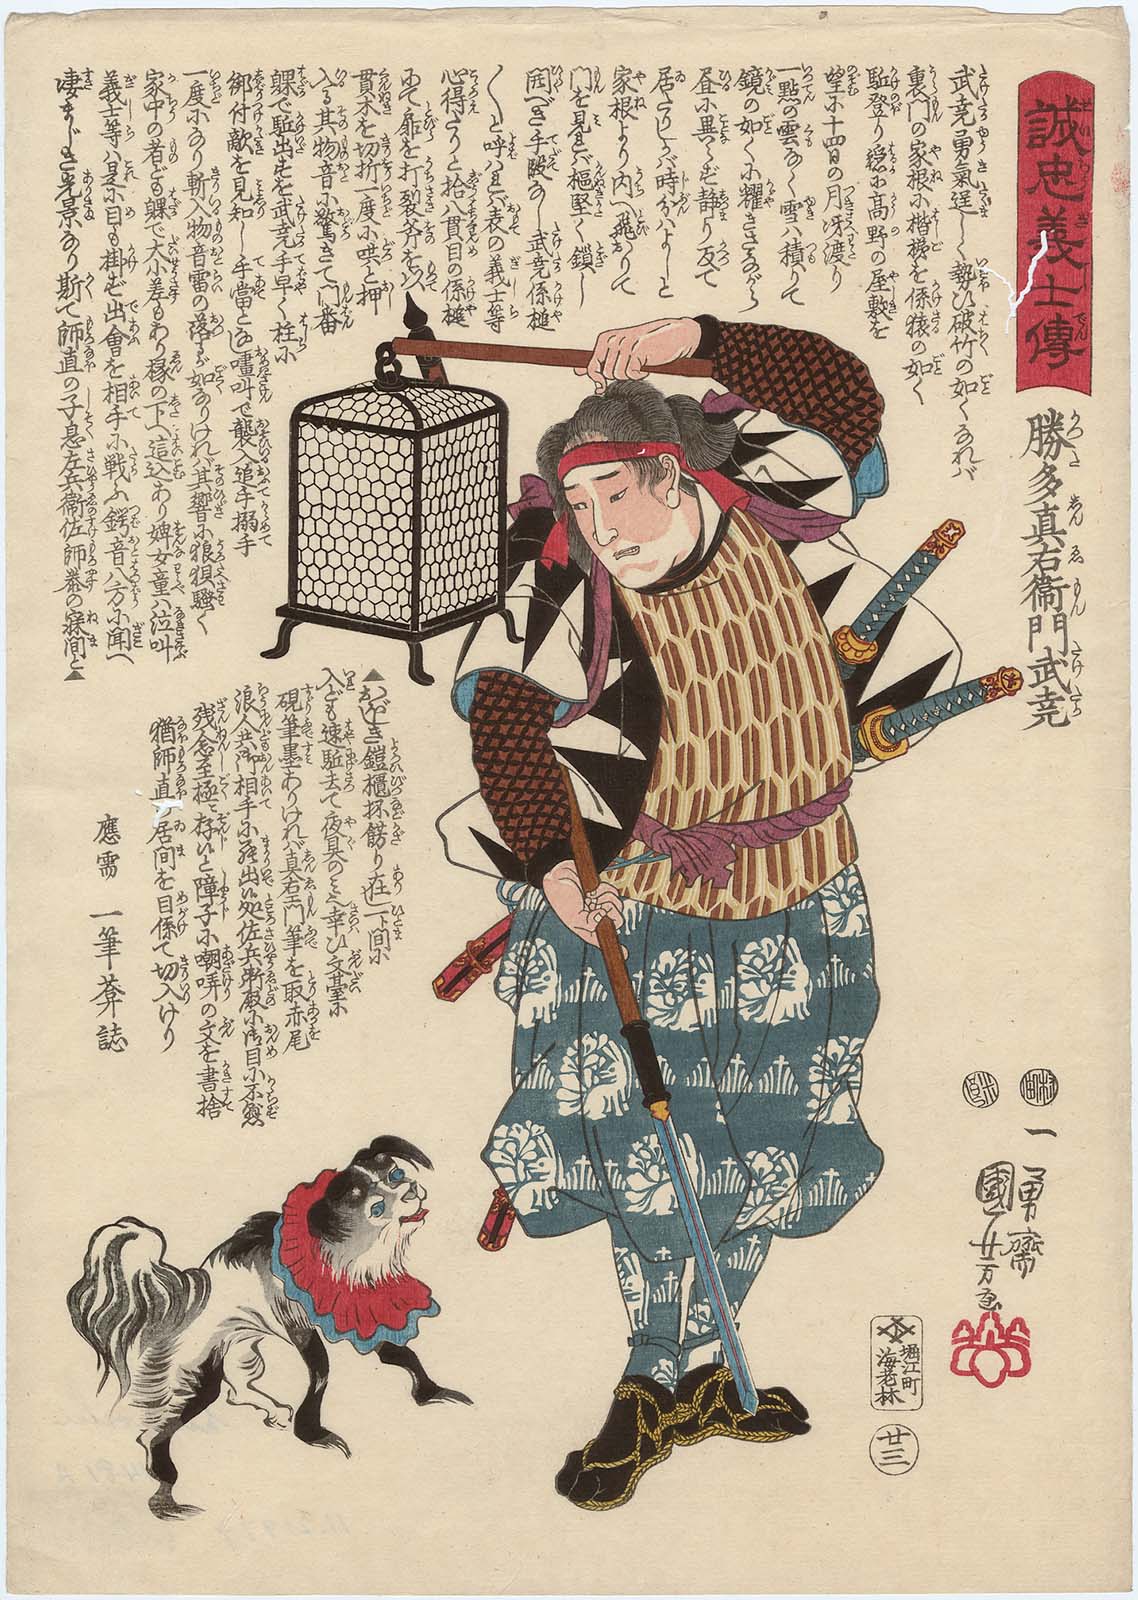 誠忠義士傳
勝多真右衞門武尭
武尭勇氣逞しく勢ひ破竹の如くなれバ
裏門の家根に楷梯を係猿の如く
駈登り穏に高野の屋敷を
望に十四日の月冴渡り
一點の雲なく雪ハ積りて
鏡の如く耀きさながら
昼に異らず静り反て
居たりしバ時分よしと
家根より内へ飛おりて
門を見れバ枢堅く鎖し
開べき手段なし武尭係槌
〱と呼ハれバ表の義士等
心得たりと拾八貫目の係槌
にて扉を打裂斧を以
貫木を切折一度に哄と押
入る其物音に驚きて門番
躶で駈出すを武尭手早く柱に
御付敵を見知し手當となし噇叫で襲入追手搦手
一度になり斬入物音雷の落るが如なりけれバ其響に狼狽騒ぐ
家中の者ども躶で大小差もあり椽の下へ這込あり婢女童ハ泣叫
義士等ハ是に目も掛ず出會を相手に戦ふ鍔音八方に聞へ
凄まじき光景なり斯て師直の子息左兵衞佐師泰の寐間と
鎧櫃抔餝り在一ト間に
入ども速駈去て夜具のミ幸ひ文臺に
硯筆墨ありけれバ真右エ門筆を取赤尾
浪人共御相手に罷出候処佐兵衛殿に御目に不懸
残念至極ニ存候と障子に嘲哢の文を書捨
猶師直の居間を目係て切入けり
應需
一筆葊誌
村田
米良
一勇齋
國芳画
堀江町
海老林
廿三